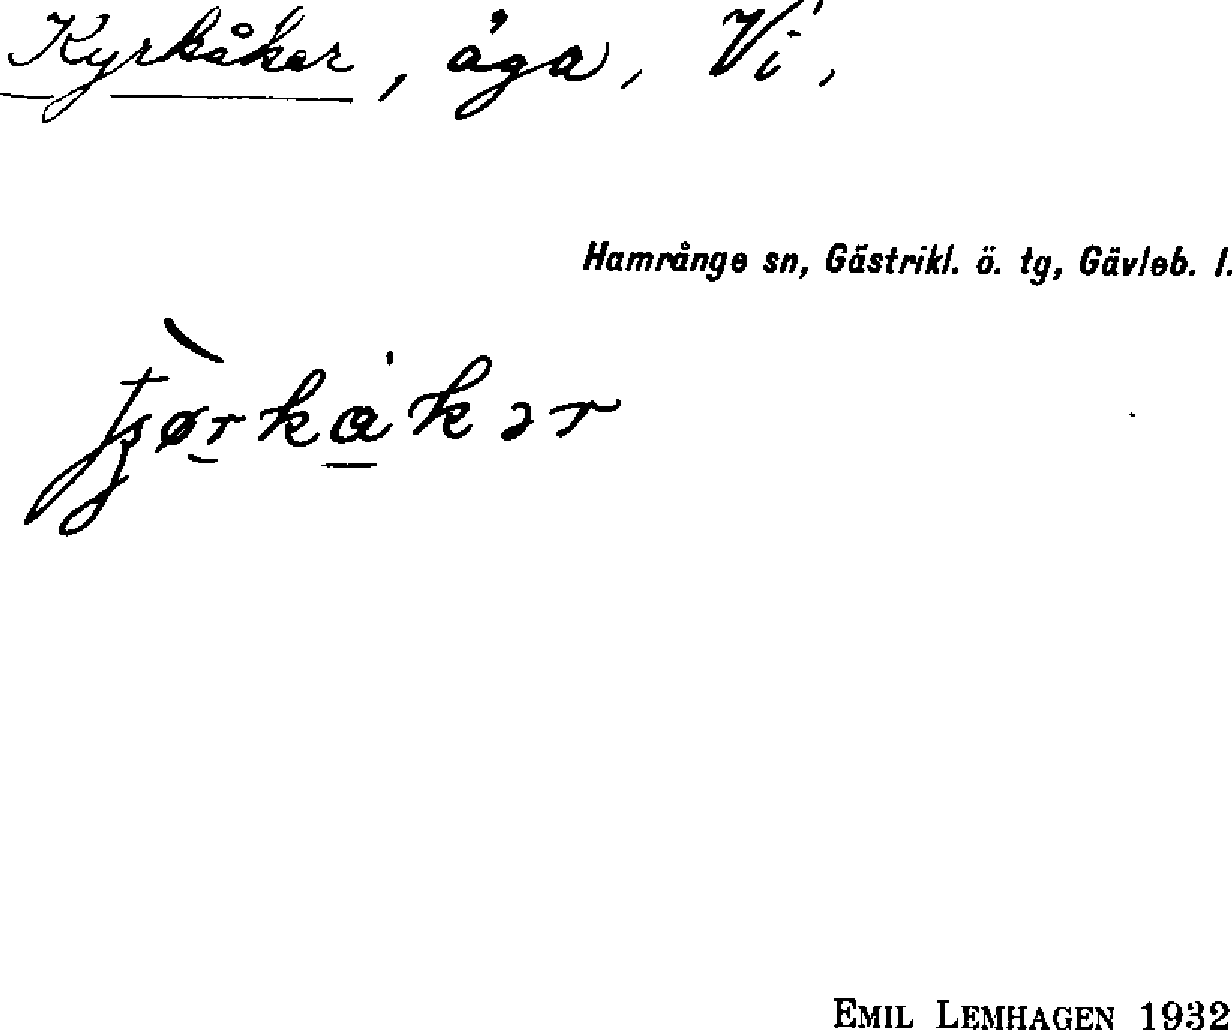 Kyrkåker, åga, Vi,
Hamrånge sn, Gästrikl. ö. tg, Gävleb. l.
EMIL LEMHAGEN 1932